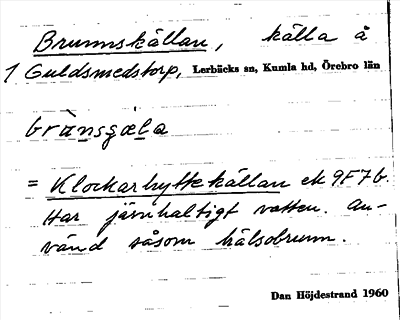 Brunnskällan, källa å
1 Guldsmedstorp, Lerbäcks sn, Kumla hd, Örebro län
brùnsɢæla
= Klockarhyttekällan ek 9F7b.
Har järnhaltigt vatten. An-
vänd såsom hälsobrunn.
Dan Höjdestrand 1960